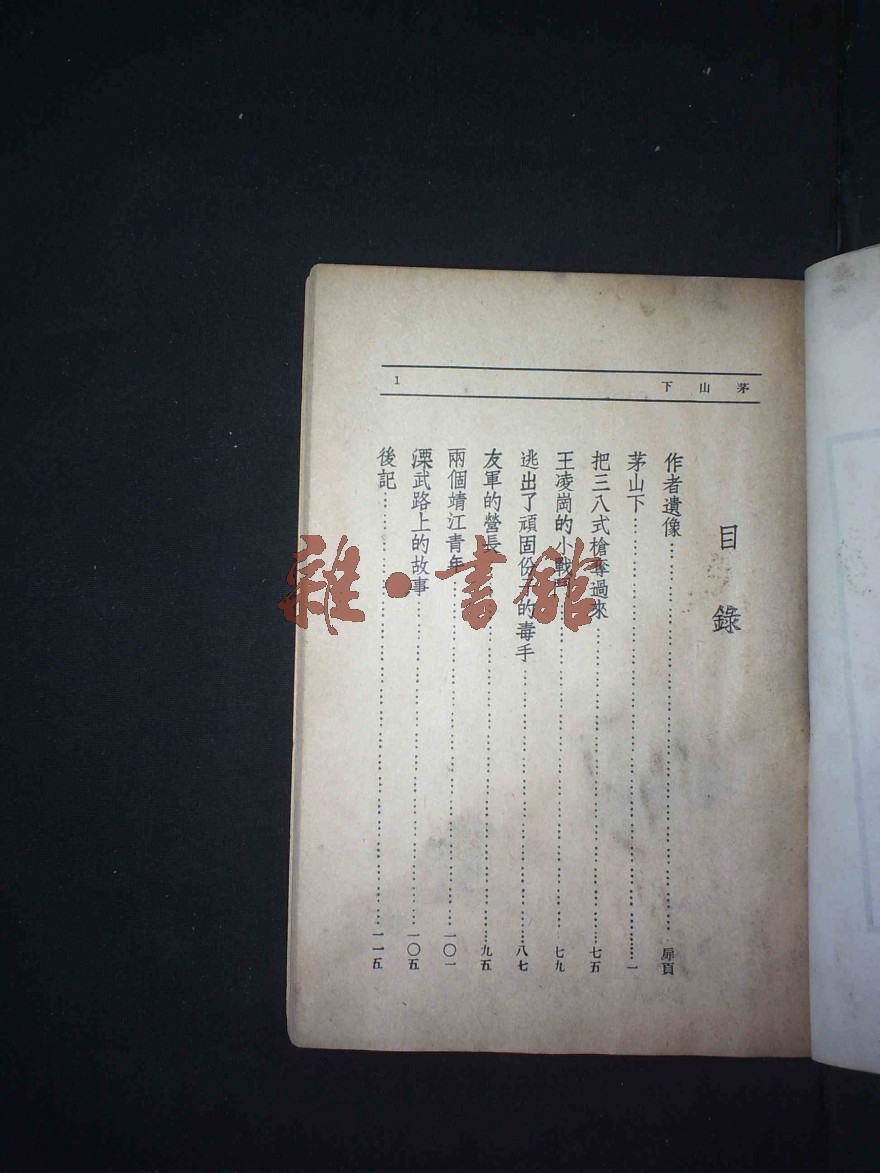 茅山下
1
目錄
作者遺像……扉頁
茅山下……一
把三八式槍奪過來……七五
王凌崗的小戰鬥……七九
逃出了頑固份子的毒手……八七
友軍的營長……九五
兩個靖江青年……一〇一
溧武路上的故事……一〇五
後記……一一五
雜·書館